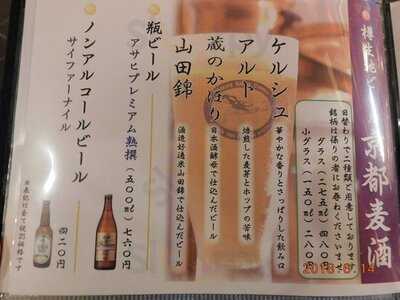 樽生地ビール
京都麦酒
日替わりで二種類ご用意しております
銘柄は係りの者にお尋ねくださいませ
グラス(二七五ml)四八〇円
小グラス(一五〇ml)二八〇円
ケルシュ
華やかな香りとさっぱりした飲み口
アルト
焙煎した麦芽とホップの苦味
蔵のかほり
日本酒酵母で仕込んだビール
山田錦
酒造好適米山田錦で仕込んだビール
瓶ビール
アサヒプレミアム熟撰(五〇〇ml)七六〇円
ノンアルコールビール
サイファーナイル
四二〇円
※表記は全て税別価格です